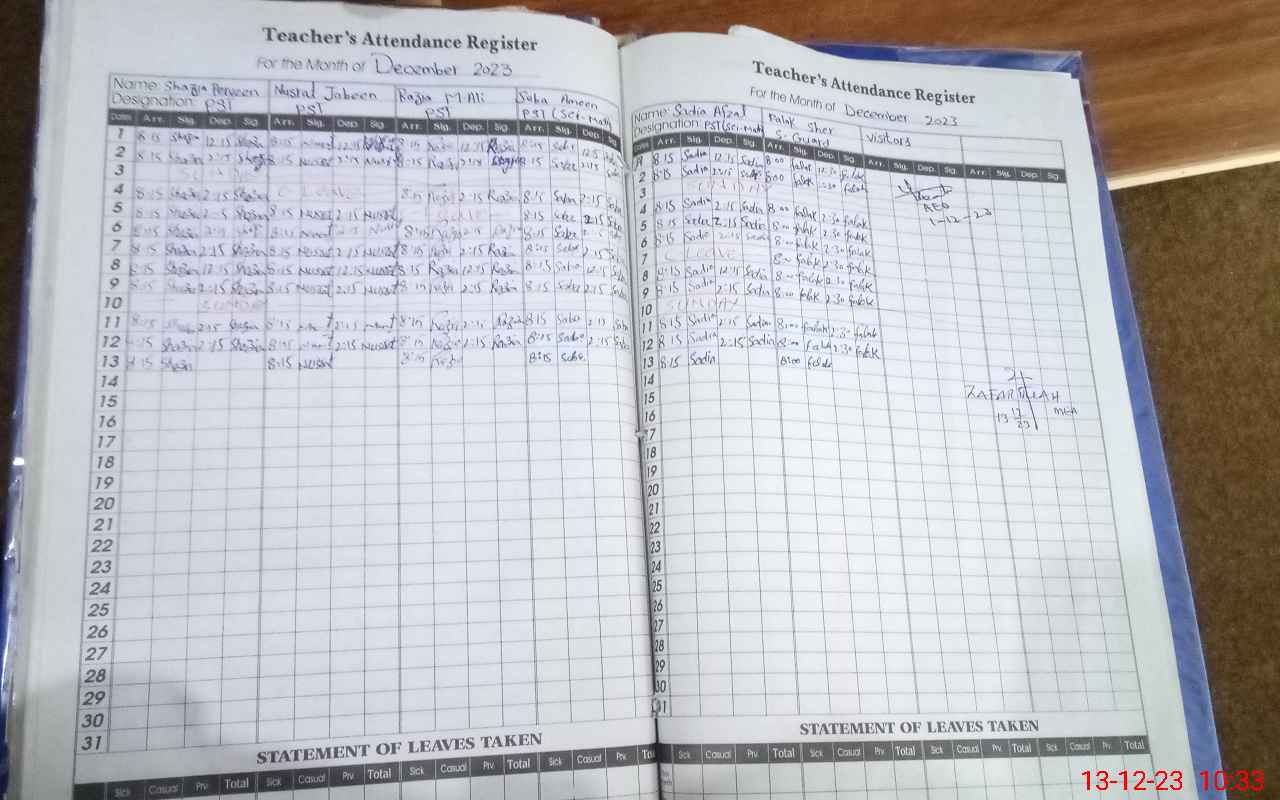 Teacher's Attendance Register
For the Month of December 2023
Name: Shazia Perveen Nusrat Jabeen Razia M.Ali Saba Ameen
Designation: PST PST PST PST (Sci-Math
Dates Arr. Sig. Dep. Sig. Arr. Sig. Dep. Sig. Arr. Sig. Dep. Sig. Arr. Sig. Dep. Sig
1 8:15 12:15 8:15 12:15 8:15 12:15 8:15 12:15
2 8:15 2:15 8:15 2:15 8:15 2:15 8:15 2:15
3 SUNDAY
4 8:15 Shazia 2:15 Shazia C LEAVE 8:15 Razia 2:15 Razia 8:15 Saba 2:15 Saba
5 8:15 Shazia 2:15 Shazia 8:15 Nusrat 2:15 Nusrat LEAVE 8:15 Saba 2:15 Saba
6 8:15 2:15 8:15 Nusrat 2:15 Nusrat 8:15 Razia 2:15 Razia 8:15 Saba 2:15 Saba
7 8:15 Shazia 2:15 Shazia 8:15 Nusrat 2:15 Nusrat 8:15 Razia 2:15 Razia 8:15 Saba 2:15 Saba
8 8:15 Shazia 12:15 Shazia 8:15 Nusrat 12:15 Nusrat 8:15 Razia 12:15 Razia 8:15 Saba 12:15 Saba
9 8:15 Shazia 2:15 Shazia 8:15 Nusrat 2:15 Nusrat 8:15 Razia 2:15 Razia 8:15 Saba 2:15 Saba
10 SUNDAY
11 8:15 2:15 Shazia 8:15 2:15 8:15 Razia 2:15 Razia 8:15 Saba 2:15 Saba
12 8:15 Shazia 2:15 Shazia 8:15 2:15 Nusrat 8:15 Razia 2:15 Razia 8:15 Saba 2:15 Saba
13 8:15 Shazia 8:15 Nusrat 8:15 Razia 8:15 Saba
14
15
16
17
18
19
20
21
22
23
24
25
26
27
28
29
30
31
STATEMENT OF LEAVES TAKEN
Sick Casual Prv. Total Sick Casual Prv. Total Sick Casual Prv. Total Sick Casual Prv. Total
Teacher's Attendance Register
For the Month of December 2023
Name: Sadia Afzal Falak Sher Visitors
Designation: PST (Sci-Math S. Guard
Arr. Sig. Dep. Sig. Arr. Sig. Dep. Sig. Arr. Sig. Dep. Sig. Arr. Sig. Dep. Sig
1 8:15 Sadia 12:15 Sadia 8:00 falak 12:30 falak
2 8:15 Sadia 2:15 Sadia 8:00 falak 2:30 falak
3 SUNDAY
AEO
1-12-23
4 8:15 Sadia 2:15 Sadia 8:00 falak 2:30 falak
5 8:15 Sadia 2:15 Sadia 8:00 falak 2:30 falak
6 8:15 Sadia 2:15 Sadia 8:00 falak 2:30 falak
7 C LEAVE 8:00 falak 2:30 falak
8 8:15 Sadia 12:15 Sadia 8:00 falak 12:30 falak
9 8:15 Sadia 2:15 Sadia 8:00 falak 2:30 falak
10 SUNDAY
11 8:15 Sadia 2:15 Sadia 8:00 falak 2:30 falak
12 8:15 Sadia 2:15 Sadia 8:00 falak 2:30 falak
13 8:15 Sadia 8:00 falak
14
15
ZAFARULLAH
MEA
16
13 12 23
17
18
19
20
21
22
23
24
25
26
27
28
29
30
31
STATEMENT OF LEAVES TAKEN
Sick Casual Prv. Total Sick Casual Prv. Total Sick Casual Prv. Total Sick Casual Prv. Total
13-12-23 10:33